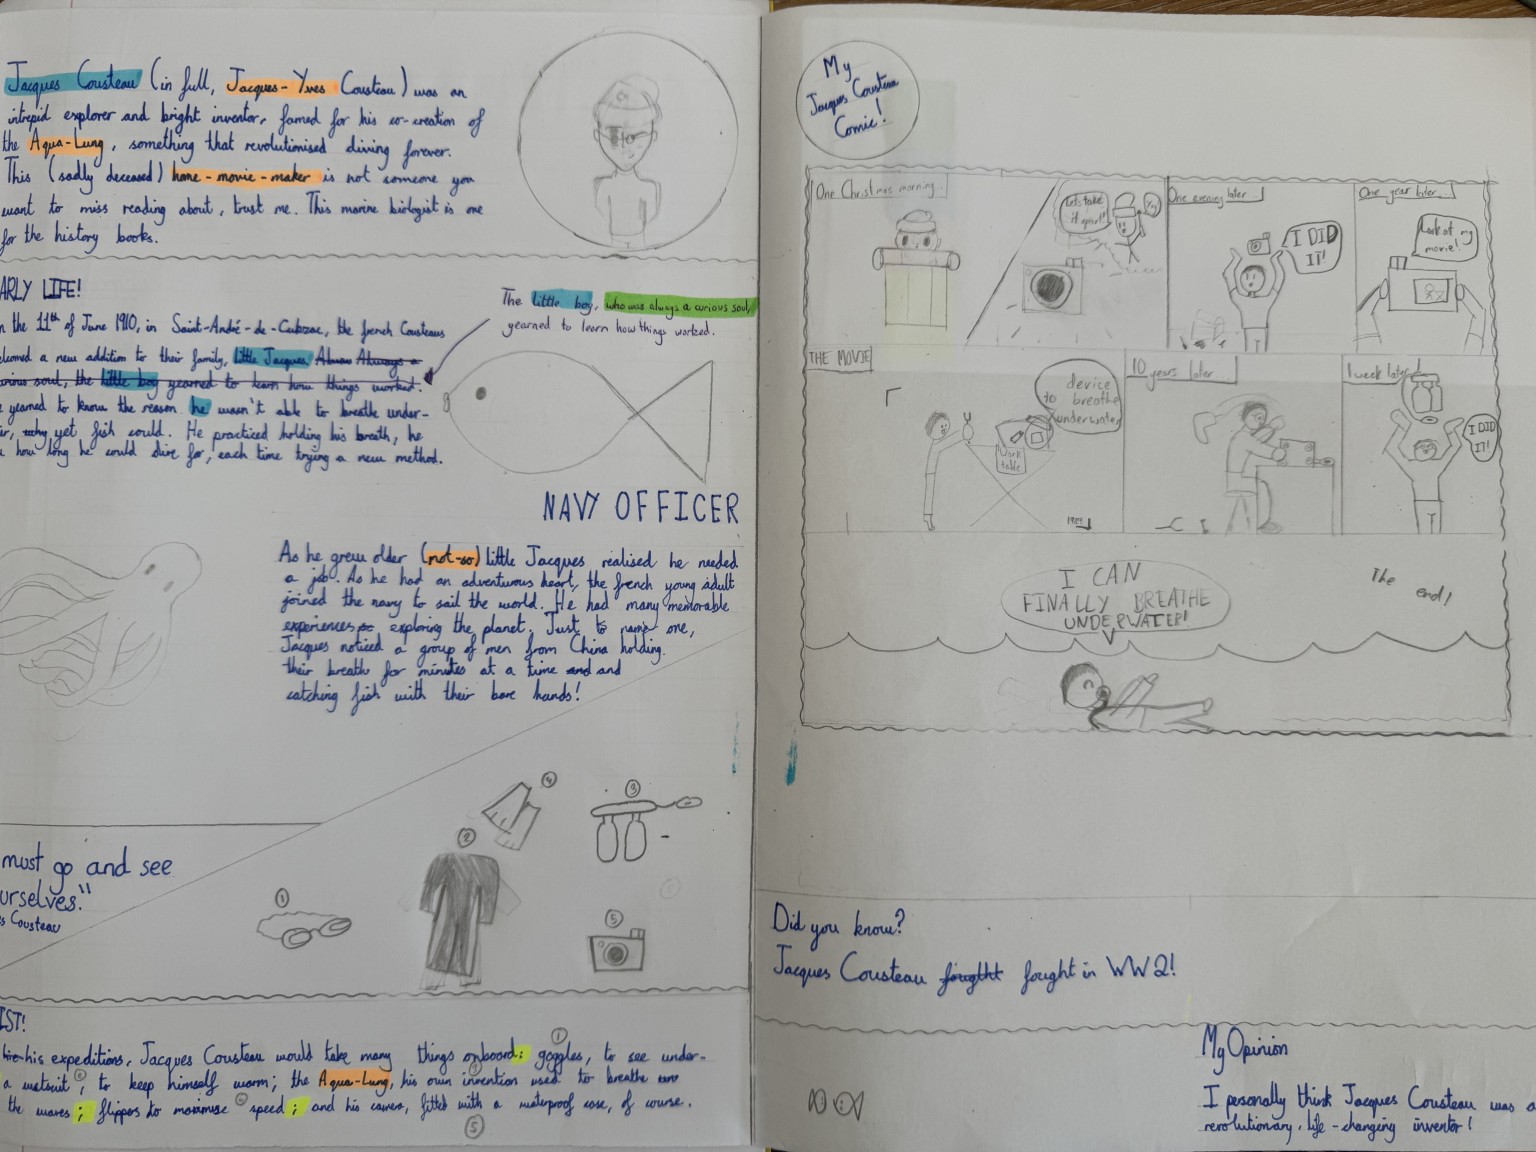 Jacques Cousteau (in full, Jacques-Yves Cousteau) was an
intrepid explorer and bright inventor, famed for his co-creation of
the Aqua-Lung, something that revolutionised diving forever.
This (sadly deceased) home-movie-maker is not someone you
want to miss reading about, trust me. This marine biologist is one
for the history books.
ARLY LIFE!
n the 11th of June 1910, in Saint-André-de-Cubzac, the french Cousteaus
elcomed a new addition to their family, little Jacques. Always a
urious soul, the little boy yearned to learn how things worked.
e yearned to know the reason he wasn't able to breathe under-
er, why yet fish could. He practiced holding his breath, he
how long he could dive for, each time trying a new method.
The little boy, who was always a curious soul,
yearned to learn how things worked.
NAVY OFFICER
As he grew older (not-so) little Jacques realised he needed
a job. As he had an adventurous heart, the french young adult
joined the navy to sail the world. He had many memorable
experiences exploring the planet. Just to name one,
Jacques noticed a group of men from China holding
their breath for minutes at a time and and
catching fish with their bare hands!
must go and see
urselves."
s Cousteau
1
2
4
3
5
IST!
his expeditions, Jacques Cousteau would take many things onboard: goggles, to see under-
1
a wetsuit, to keep himself warm; the Aqua-Lung, his own invention used to breathe
the waves; flippers to maximise speed; and his camera, fitted with a waterproof case, of course.
5
My
Jacques Cousteau
Comic!
One Christmas morning...
Let's take it apart!
Yay
One evening later...
I DID
IT!
One year later...
Look at my
movie!
THE MOVIE
device
to breathe
underwater
Work
table
10 years later...
1 week later
I DID
IT!
I CAN
FINALLY BREATHE
UNDERWATER!
The
end!
Did you know?
Jacques Cousteau fougtht fought in WW2!
My Opinion
I personally think Jacques Cousteau was a
revolutionary, life-changing inventor!